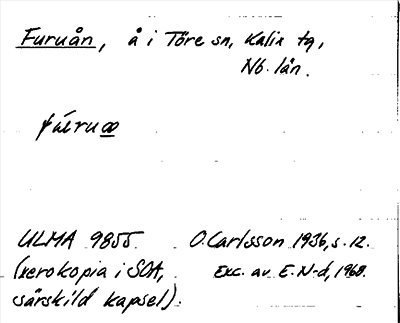 Furuån, å i Töre sn, Kalix tg,
Nb. län.
ULMA 9855 O. Carlsson 1936, s. 12.
(xerokopia i SOA, Exc. av E. N-d, 1968.
särskild kapsel).